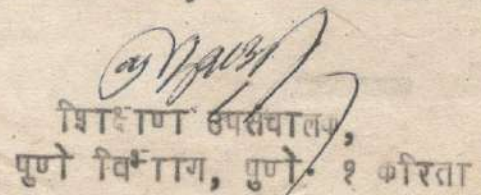 शिक्षण उपसंचालक,
पुणे विभाग, पुणे. १ करिता